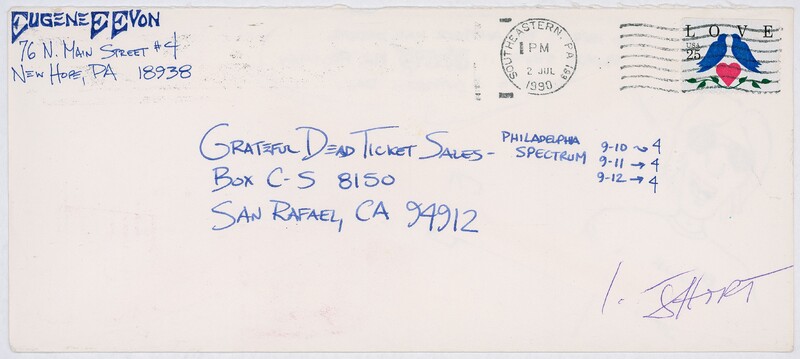 EUGENE E EVON
76 N. MAIN STREET #4
NEW HOPE, PA 18938
SOUTHEASTERN, PA
PM
2 JUL
1990
LOVE
USA
25
GRATEFUL DEAD TICKET SALES-
BOX C-S 8150
SAN RAFAEL, CA 94912
PHILADELPHIA
SPECTRUM
9-10 → 4
9-11 → 4
9-12 → 4
1. SHORT